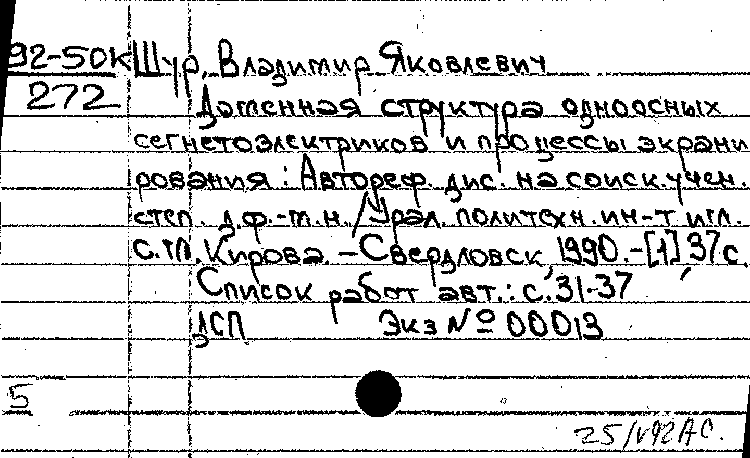 92-50К Шур, Владимир Яковлевич
272 Доменная структура одноосных
сегнетоэлектриков и процессы экрани
рования: Автореф. дис. на соиск. учен.
степ. д.ф.-м.н. / Урал. политехн. ин-т им.
С.М. Кирова. - Свердловск, 1990. - [1] 37 с.
Список работ авт.: с. 31-37
ДСП Экз № 00013
5
25/V92 АС.